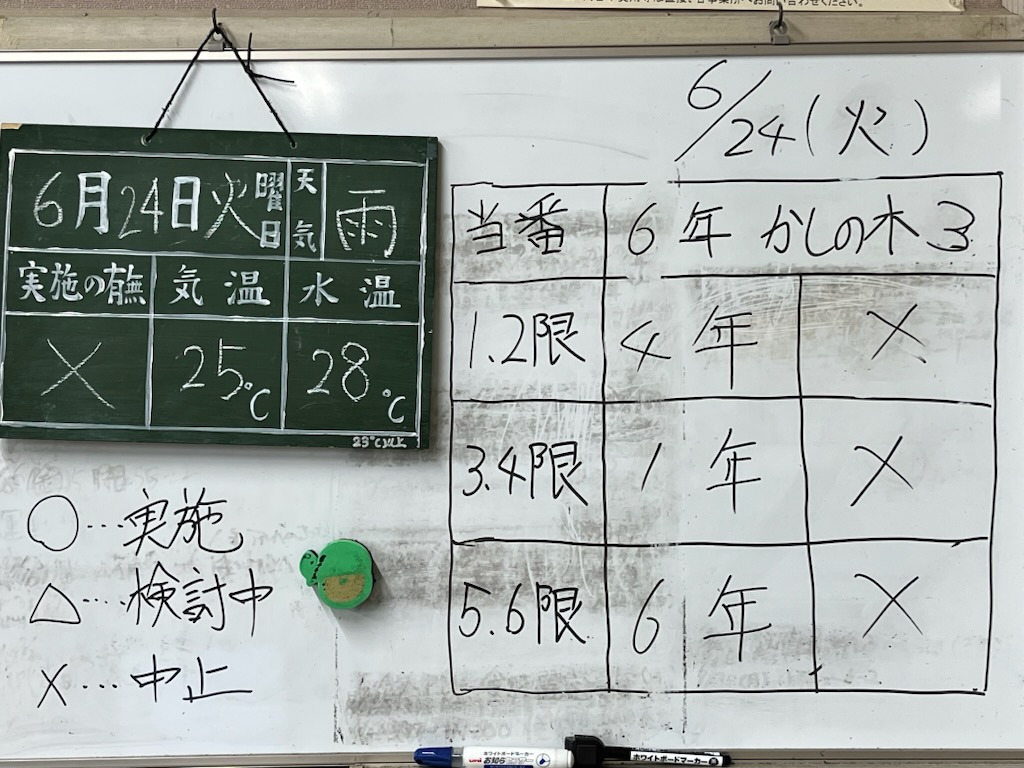 6月24日火曜日 天気 雨
実施の有無 気温 水温
× 25℃ 28℃
23℃以上
○…実施
△…検討中
×…中止
6/24(火)
当番 6年 かしの木3
1.2限 4年 ×
3.4限 1年 ×
5.6限 6年 ×
ホワイトボードマーカー
uni お知らせマーカー
ホワイトボードマーカー